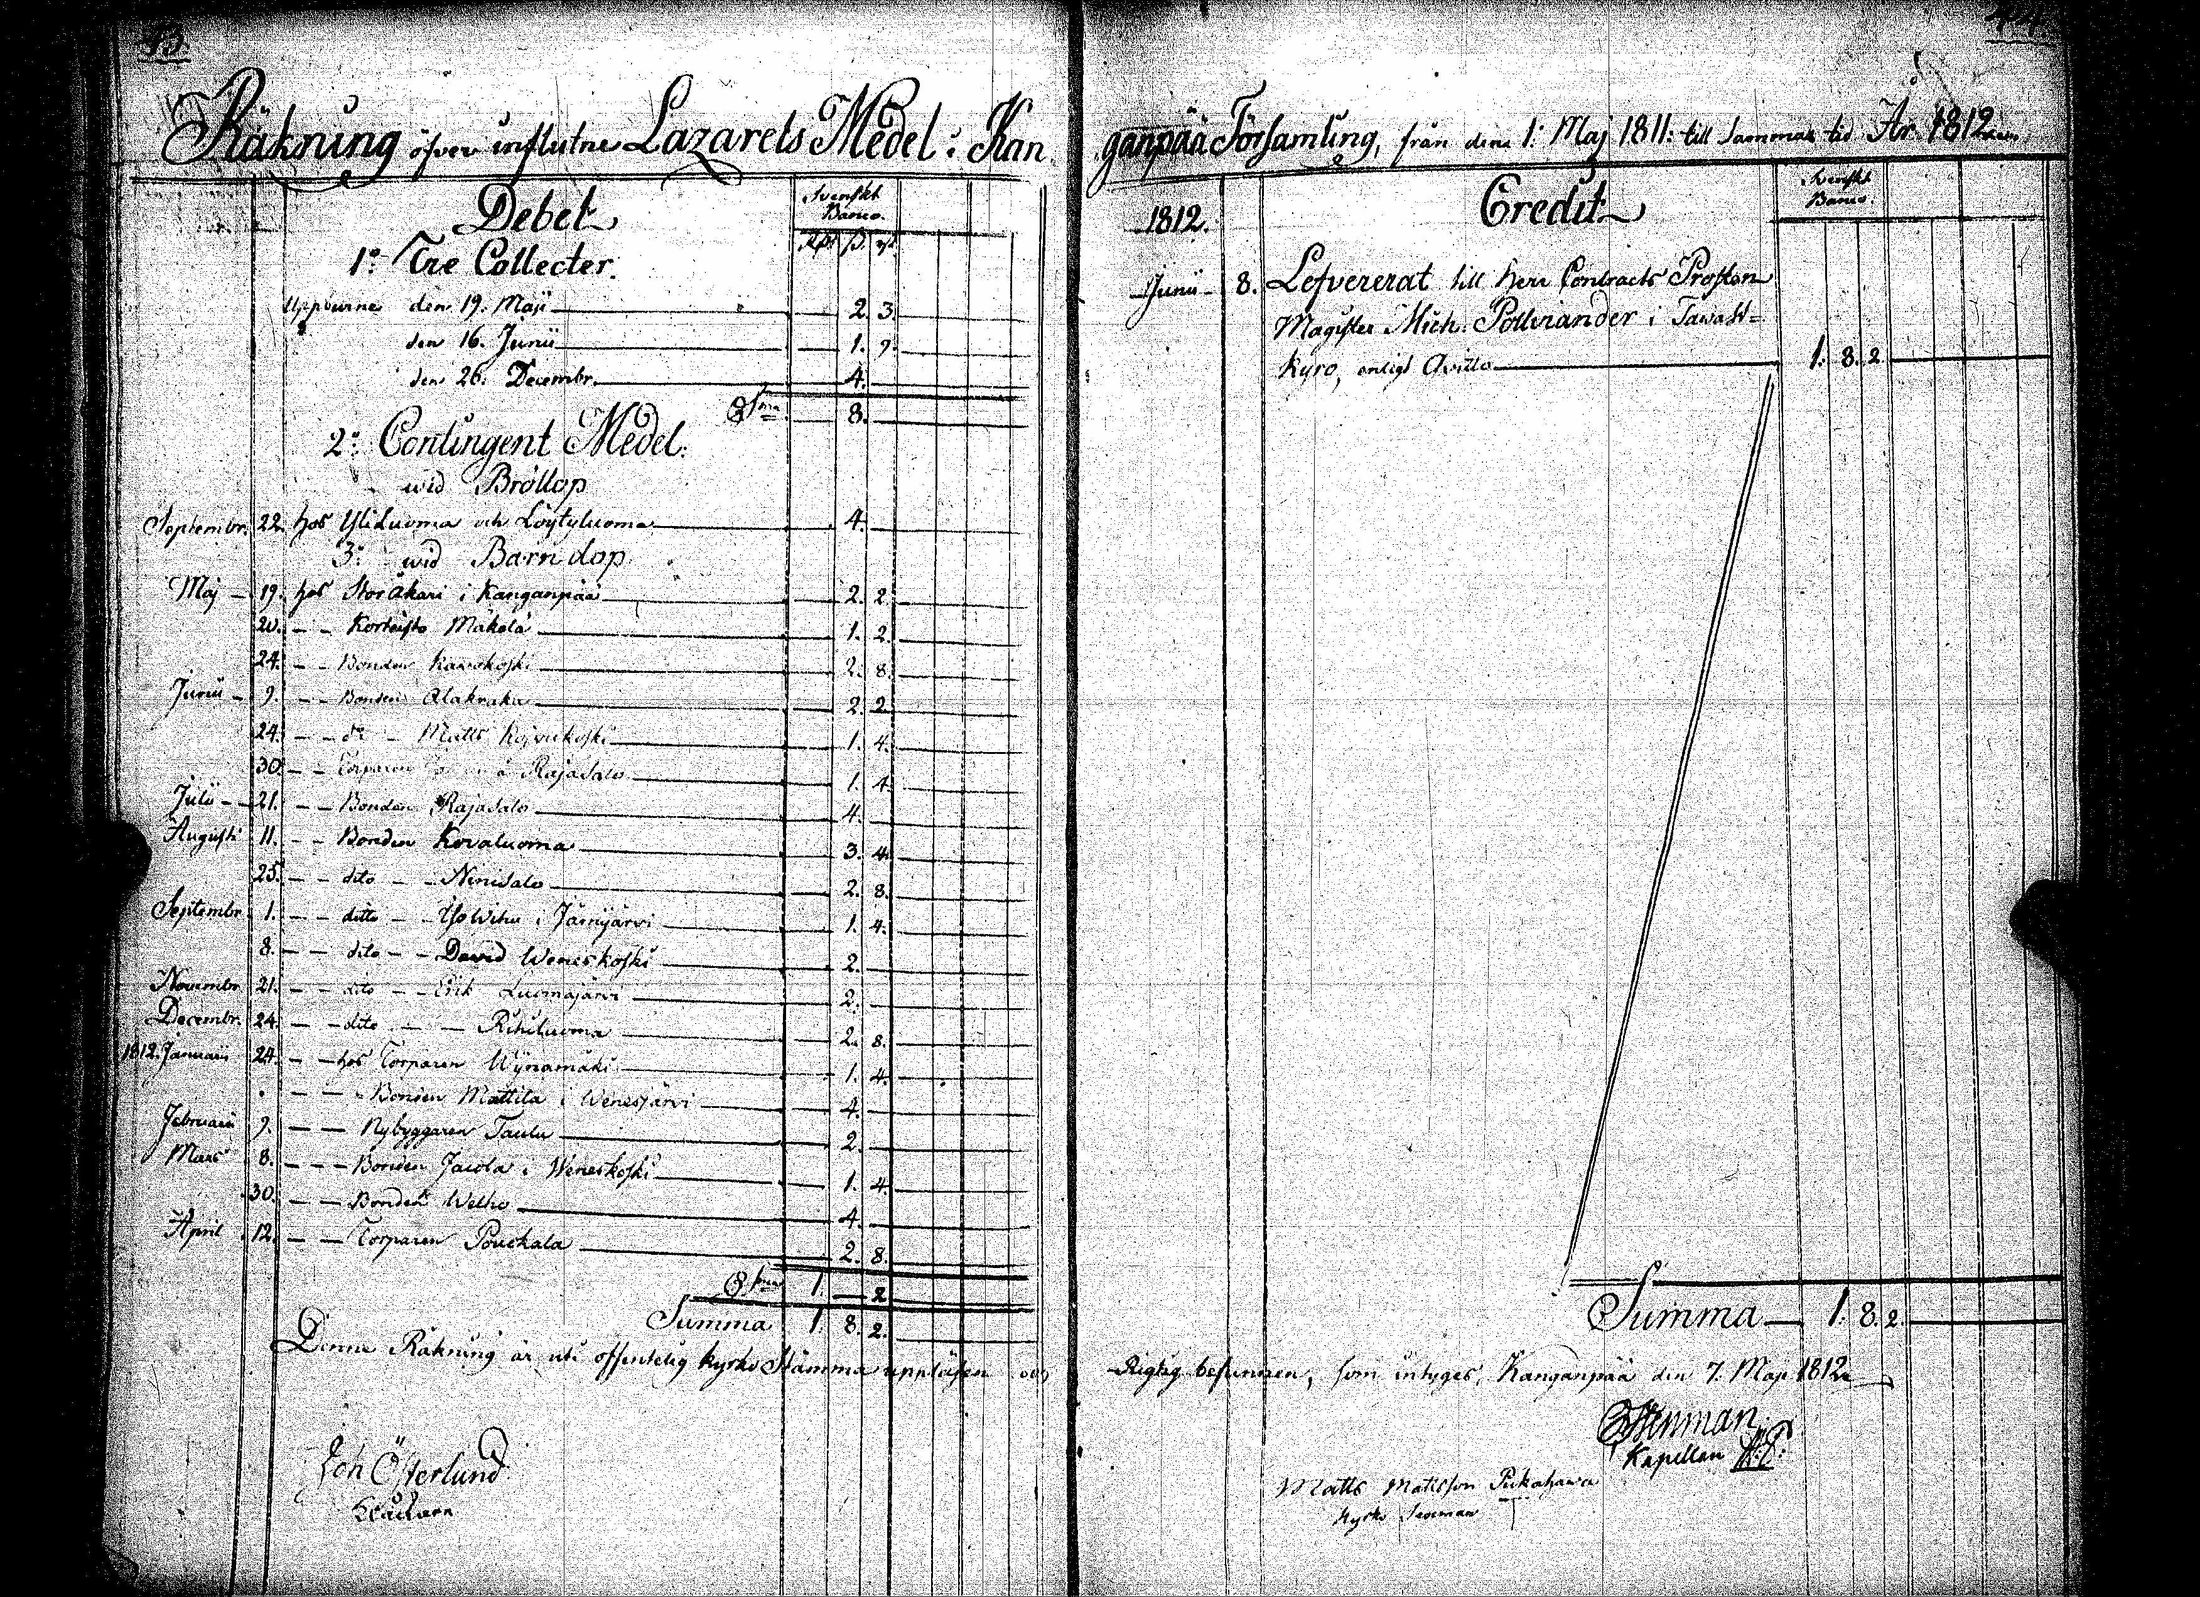 43.
Räkning öfver influtne Lazarets Medel i Kan
Debet
Svenskt Banco.
Rdr ß. rst.
1:o Tre Collecter.
Uppburne den 19. Maji 2. 3.
den 16. Junii 1. 9.
den 26. Decembr. 4.
Sma 8.
2:o Contingent Medel.
wid Bröllop
Septembr. 22. hos Yli Luoma och Löytyluoma 4.
3:o wid Barndop
Maj 19. hos Storåkari i Kanganpää 2. 2.
20. Korkeisto Mäkelä 1. 2.
24. Bonden 2. 8.
Junii 9. Bonden Alakraka 2. 2.
24. do Matts 1. 4.
30. Torparen å Rajasalo 1. 4.
Julii 21. Bonden Rajasalo 4.
Augusti 11. Bonden Kovaluoma 3. 4.
25. dito Niinisalo 2. 8.
Septembr. 1. ditto i Jämijärvi 1. 4.
8. dito David Weneskoski 2.
Novembr. 21. dito Erik Luomajärvi 2.
Decembr. 24. dito Rihiluoma 2. 8.
1812. Januarii 24. hos Torparen Wynamäki 1. 4.
Bonden Mattila i Wenesjärvi 4.
Februarii 9. Nybyggaren Taulu 2.
Mars 8. Bonden Jacola i Weneskoski 1. 4.
30. Bonden Welho 4.
April 12. Torparen Pouckala 2. 8.
Sma 1. — 2.
Summa 1. 8. 2.
Denna Räkning är uti offentelig kyrko Stämma uppläsen och
Joh Österlund
44.
ganpää Församling, från den 1: Maj 1811: till samma tid År 1812.
1812.
Credit
Svenskt Banco.
Junii 8. Lefvererat till Herr Contracts Prosten
Magister Mich: Polviander i Tavast=
kyro, enligt Qvitto 1. 8. 2.
Summa 1. 8. 2.
Rigtig befunnen, som intyges, Kanganpää den 7. Maji 1812
Stenman
Kapellan
Matts Matsson Pukahawa
kyrko